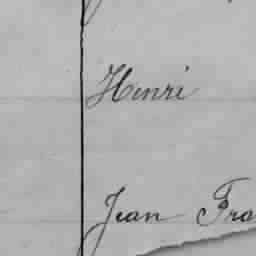 Henri
Jean Fra